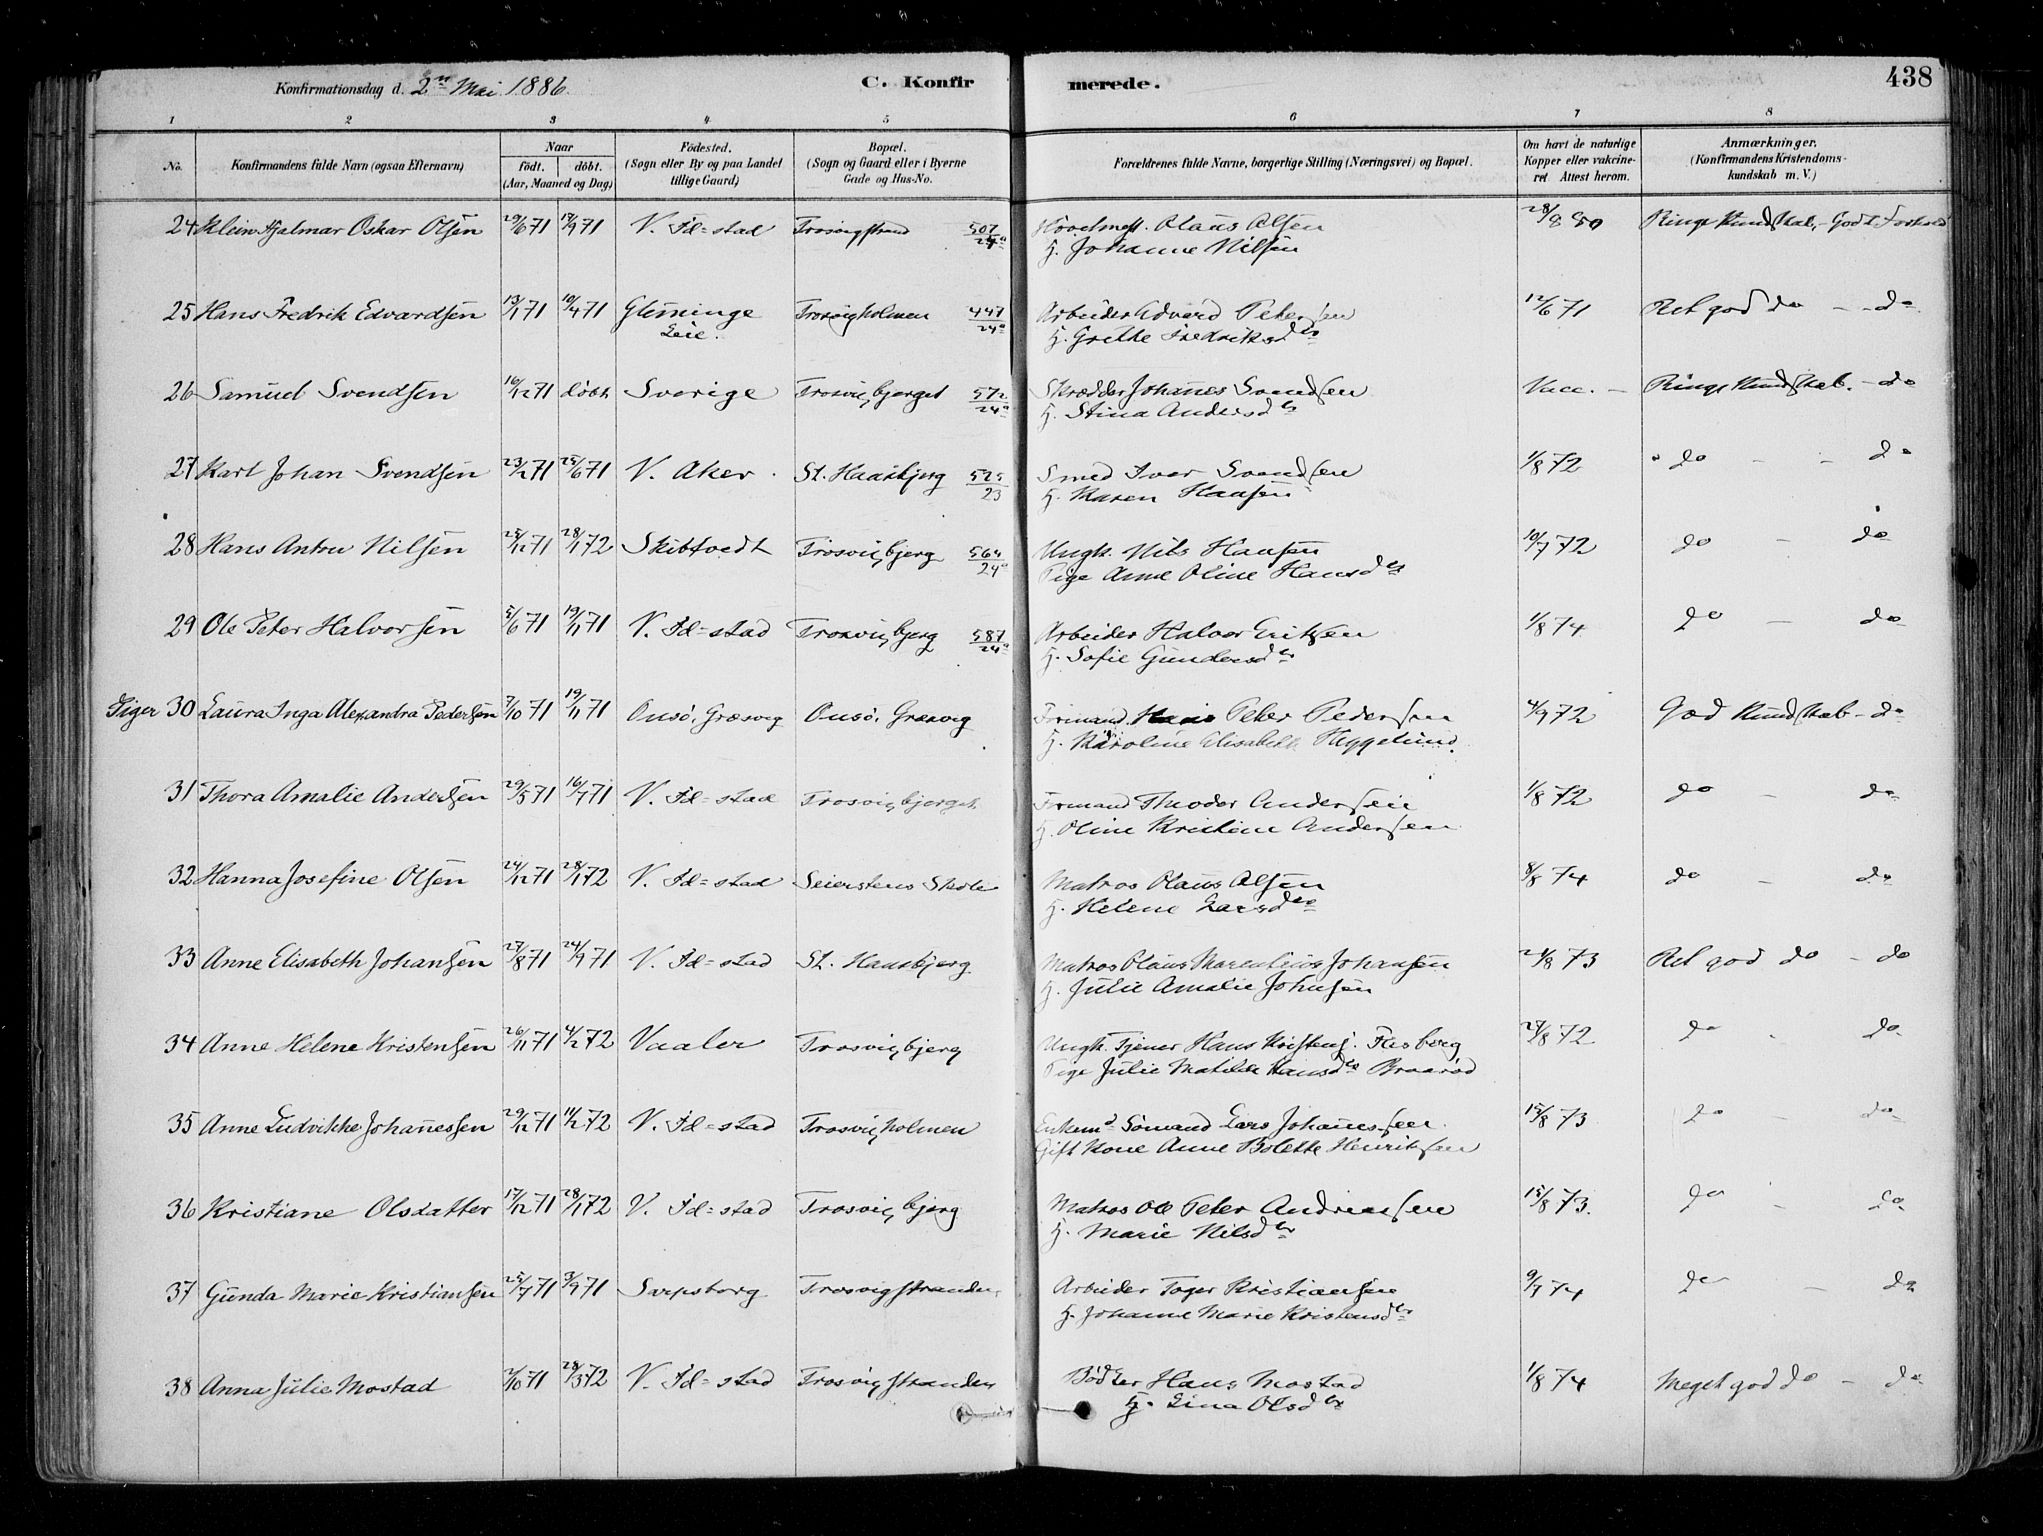 Konfirmationsdag d. 2den Mai 1886. C. Konfirmerede. 438
1 2 3 4 5 6 7 8
No. Konfirmandens fulde Navn (ogsaa Efternavn) Naar født. døbt. (Aar, Maaned og Dag) Fødested. (Sogn eller By og paa Landet tillige Gaard) Bopæl. (Sogn og Gaard eller i Byerne Gade og Hus-No. Forældrenes fulde Navne, borgerlige Stilling (Næringsvei) og Bopæl. Om havt de naturlige Kopper eller vakcineret. Attest herom. Anmærkninger. (Konfirmandens Kristendomskundskab m. V.)
24 Klein Hjalmar Oskar Olsen 29/6 71 17/9 71 V. Fd=stad Trosvigstrand 507/24a Olaus Olsen 28/8 80 Ringe Kundskab, - Godt Forhold
H. Johanne Nilsen
25 Hans Fredrik Edvardsen 13/1 71 10/4 71 Gleminge Trosvigholmen 447/24a Arbeider Edvard Petersen 12/6 71 Ret god do - - do
Leie. H. Grethe Fredriksdtr
26 Samuel Svendsen 16/12 71 døbt Sverige Trosvigbjerget 572/24a Skrædder Johanes Svendsen Vacc. - Ringe Kundskab. - do
H. Stina Andersdtr
27 Karl Johan Svendsen 23/2 71 25/6 71 V. Aker St. Hansbjerg 525/23 Smed Iver Svendsen 1/8 72 do - - do
H. Karen Hansen
28 Hans Anton Nilsen 25/12 71 28/1 72 Skibtvedt Trosvigbjerg 564/24a Ungk. Nils Hansen 10/7 72 do - do
Pige Anne Oline Hansdtr
29 Ole Peter Halvorsen 5/6 71 19/11 71 V. Fd=stad Trosvigbjerg 587/24a Arbeider Halvor Eriksen 1/8 74 do - do
H. Sofie Gundersdtr
Piger 30 Laura Inga Alexandra Pedersen 7/10 71 19/11 71 Onsø, Græsvig Onsø, Græsvig Formand Peter Pedersen 4/9 72 God Kundskab - do
H. Karoline Elisabeth Heggelund.
31 Thora Amalie Andersen 29/5 71 16/7 71 V. Fd=stad Trosvigbjerget Formand Theodor Andersen 1/8 72 do - do
H. Oline Kristine Andersen
32 Hanna Josefine Olsen 24/12 71 28/1 72 V. Fd=stad Seierstens Skole Matros Olaus Olsen 8/8 74 do - do
H. Helene Larsdtr
33 Anne Elisabeth Johansen 27/8 71 24/9 71 V. Fd=stad St. Hansbjerg Matros Olaus Marentius Johansen 21/8 73 Ret god do - do
H. Julie Amalie Johnsen
34 Anne Helene Kristensen 26/11 71 4/2 72 Vaaler Trosvigbjerg Ungk. Tjener Hans Kristens. Flesberg 27/8 72 do - do
Pige Julie Matilde Hansdtr Braarød
35 Anne Ludvikke Johanessen 29/12 71 11/2 72 V. Fd=stad Trosvigholmen Enkemd Sømand Lars Johanessen 15/8 73 do - do
Gift Kone Anne Bolette Henriksen
36 Kristiane Olsdatter 17/12 71 28/1 72 V. Fd=stad Trosvigbjerg Matros Ole Peter Andreassen 15/8 73. do - do
H. Marie Nilsdtr
37 Gunda Marie Kristiansen 25/7 71 3/9 71 Sarpsborg Trosvigstranden Arbeider Toger Kristiansen 9/7 74 do - do
H. Johanne Marie Kristensdtr
38 Anna Julie Mostad 2/10 71 28/3 72 V. Fd=stad Trosvigstranden Bødker Hans Mostad 1/8 74 Meget god do - do
H. Lina Olsdtr